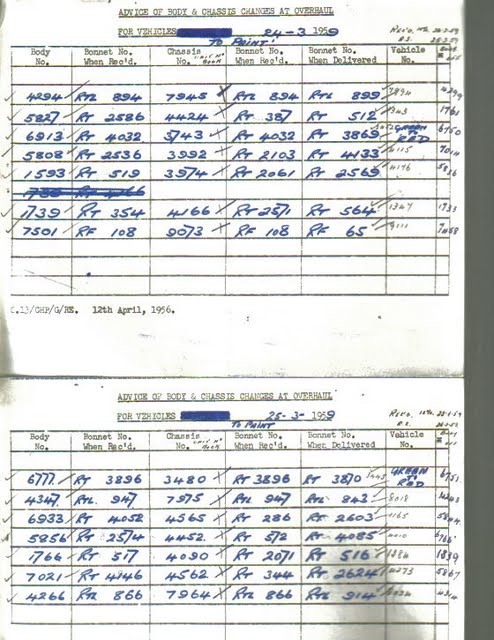 ADVICE OF BODY & CHASSIS CHANGES AT OVERHAUL
FOR VEHICLES 24-3 1959
TO PAINT
Body No. Bonnet No. When Rec'd. Chassis No. Bonnet No. When Rec'd. Bonnet No. When Delivered Vehicle No.
4294 RTL 894 7945 RTL 894 RTL 899
5827 RT 2586 4424 RT 387 RT 512
6913 RT 4032 3743 RT 4032 RT 3869 GREEN TO RED
5808 RT 2536 3992 RT 2103 RT 4133
1593 RT 519 3974 RT 2061 RT 2569
1739 RT 354 4166 RT 2571 RT 564 1347
7501 RF 108 9073 RF 108 RF 65
C.13/CHP/G/RE. 12th April, 1956.
ADVICE OF BODY & CHASSIS CHANGES AT OVERHAUL
FOR VEHICLES 25-3- 1959
TO PAINT
Body No. Bonnet No. When Rec'd. Chassis No. Bonnet No. When Rec'd. Bonnet No. When Delivered Vehicle No.
6777 RT 3896 3480 RT 3896 RT 3870 GREEN TO RED
4347 RTL 947 7975 RTL 947 RTL 842
6933 RT 4052 4565 RT 286 RT 2603
5956 RT 2574 4452 RT 572 RT 4085
1766 RT 517 4090 RT 2071 RT 516
7021 RT 4146 4562 RT 344 RT 2624 4273
4266 RTL 866 7964 RTL 866 RTL 914